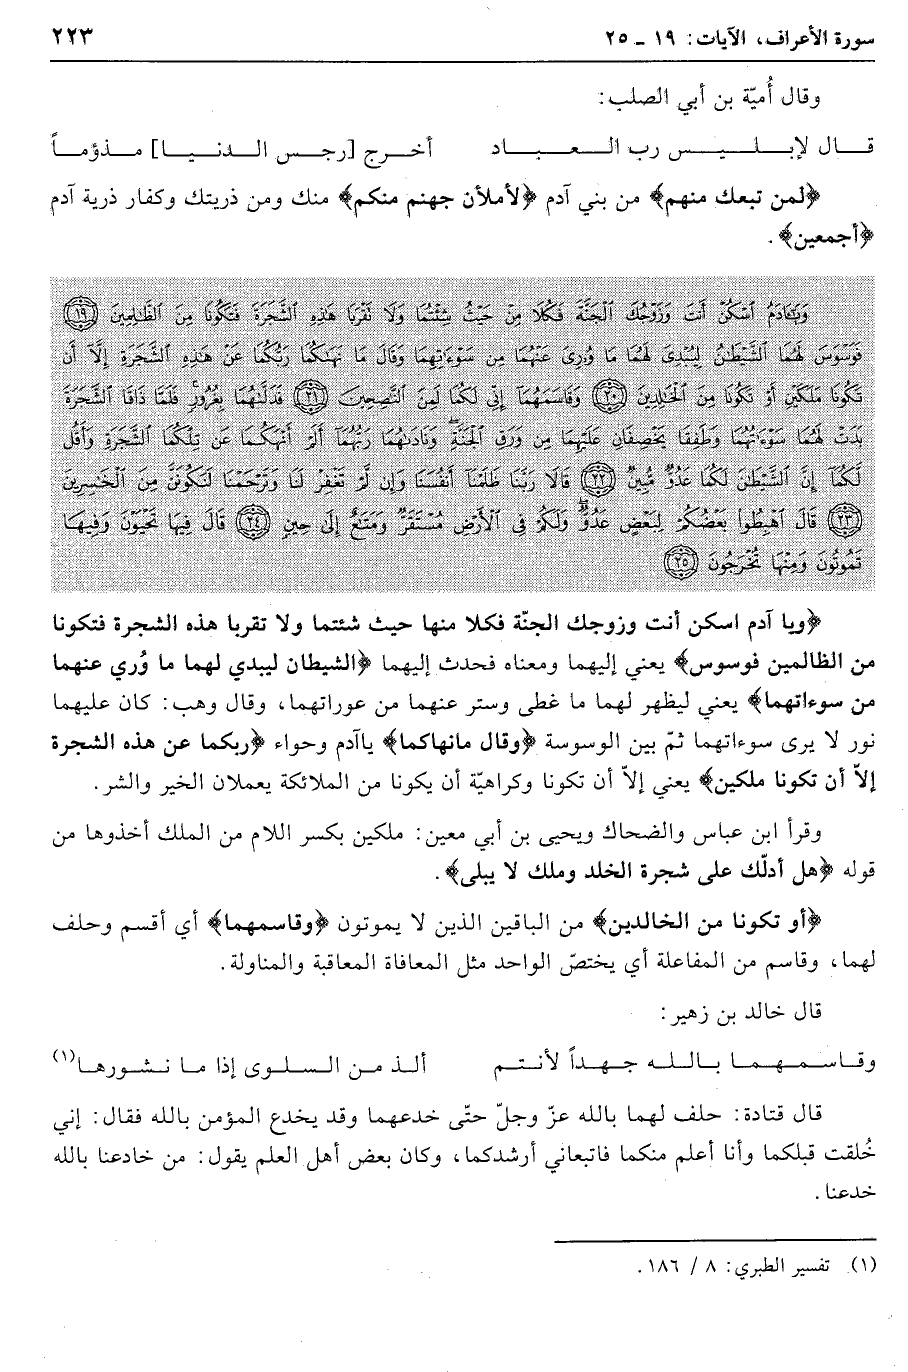 سورة الأعراف، الآيات: ١٩ - ٢٥
٢٢٣
وقال أُميّة بن أبي الصلب:
قال لإبليس رب العباد أخرج [رجس الدنيا] مذؤماً
﴿لمن تبعك منهم﴾ من بني آدم ﴿لأملأن جهنم منكم﴾ منك ومن ذريتك وكفار ذرية آدم
﴿أجمعين﴾.
وَيَٰٓـَٔادَمُ ٱسْكُنْ أَنتَ وَزَوْجُكَ ٱلْجَنَّةَ فَكُلَا مِنْ حَيْثُ شِئْتُمَا وَلَا تَقْرَبَا هَٰذِهِ ٱلشَّجَرَةَ فَتَكُونَا مِنَ ٱلظَّٰلِمِينَ ﴿١٩﴾
فَوَسْوَسَ لَهُمَا ٱلشَّيْطَٰنُ لِيُبْدِيَ لَهُمَا مَا وُۥرِيَ عَنْهُمَا مِن سَوْءَٰتِهِمَا وَقَالَ مَا نَهَىٰكُمَا رَبُّكُمَا عَنْ هَٰذِهِ ٱلشَّجَرَةِ إِلَّآ أَن
تَكُونَا مَلَكَيْنِ أَوْ تَكُونَا مِنَ ٱلْخَٰلِدِينَ ﴿٢٠﴾ وَقَاسَمَهُمَآ إِنِّي لَكُمَا لَمِنَ ٱلنَّٰصِحِينَ ﴿٢١﴾ فَدَلَّىٰهُمَا بِغُرُورٍ ۚ فَلَمَّا ذَاقَا ٱلشَّجَرَةَ
بَدَتْ لَهُمَا سَوْءَٰتُهُمَا وَطَفِقَا يَخْصِفَانِ عَلَيْهِمَا مِن وَرَقِ ٱلْجَنَّةِ ۖ وَنَادَىٰهُمَا رَبُّهُمَآ أَلَمْ أَنْهَكُمَا عَن تِلْكُمَا ٱلشَّجَرَةِ وَأَقُل
لَّكُمَآ إِنَّ ٱلشَّيْطَٰنَ لَكُمَا عَدُوٌّ مُّبِينٌ ﴿٢٢﴾ قَالَا رَبَّنَا ظَلَمْنَآ أَنفُسَنَا وَإِن لَّمْ تَغْفِرْ لَنَا وَتَرْحَمْنَا لَنَكُونَنَّ مِنَ ٱلْخَٰسِرِينَ
﴿٢٣﴾ قَالَ ٱهْبِطُوا۟ بَعْضُكُمْ لِبَعْضٍ عَدُوٌّ ۖ وَلَكُمْ فِي ٱلْأَرْضِ مُسْتَقَرٌّ وَمَتَٰعٌ إِلَىٰ حِينٍ ﴿٢٤﴾ قَالَ فِيهَا تَحْيَوْنَ وَفِيهَا
تَمُوتُونَ وَمِنْهَا تُخْرَجُونَ ﴿٢٥﴾
﴿ويا آدم اسكن أنت وزوجك الجنّة فكلا منها حيث شئتما ولا تقربا هذه الشجرة فتكونا
من الظالمين فوسوس﴾ يعني إليهما ومعناه فحدث إليهما ﴿الشيطان ليبدي لهما ما وُري عنهما
من سوءاتهما﴾ يعني ليظهر لهما ما غطى وستر عنهما من عوراتهما، وقال وهب: كان عليهما
نور لا يرى سوءاتهما ثمّ بين الوسوسة ﴿وقال مانهاكما﴾ ياآدم وحواء ﴿ربكما عن هذه الشجرة
إلاّ أن تكونا ملكين﴾ يعني إلاّ أن تكونا وكراهيّة أن يكونا من الملائكة يعملان الخير والشر.
وقرأ ابن عباس والضحاك ويحيى بن أبي معين: ملكين بكسر اللام من الملك أخذوها من
قوله ﴿هل أدلّك على شجرة الخلد وملك لا يبلى﴾.
﴿أو تكونا من الخالدين﴾ من الباقين الذين لا يموتون ﴿وقاسمهما﴾ أي أقسم وحلف
لهما، وقاسم من المفاعلة أي يختصّ الواحد مثل المعافاة المعاقبة والمناولة.
قال خالد بن زهير:
وقاسمهما بالله جهداً لأنتم ألذ من السلوى إذا ما نشورها(١)
قال قتادة: حلف لهما بالله عزّ وجلّ حتّى خدعهما وقد يخدع المؤمن بالله فقال: إني
خُلقت قبلكما وأنا أعلم منكما فاتبعاني أرشدكما، وكان بعض أهل العلم يقول: من خادعنا بالله
خدعنا.
(١) تفسير الطبري: ٨ / ١٨٦.